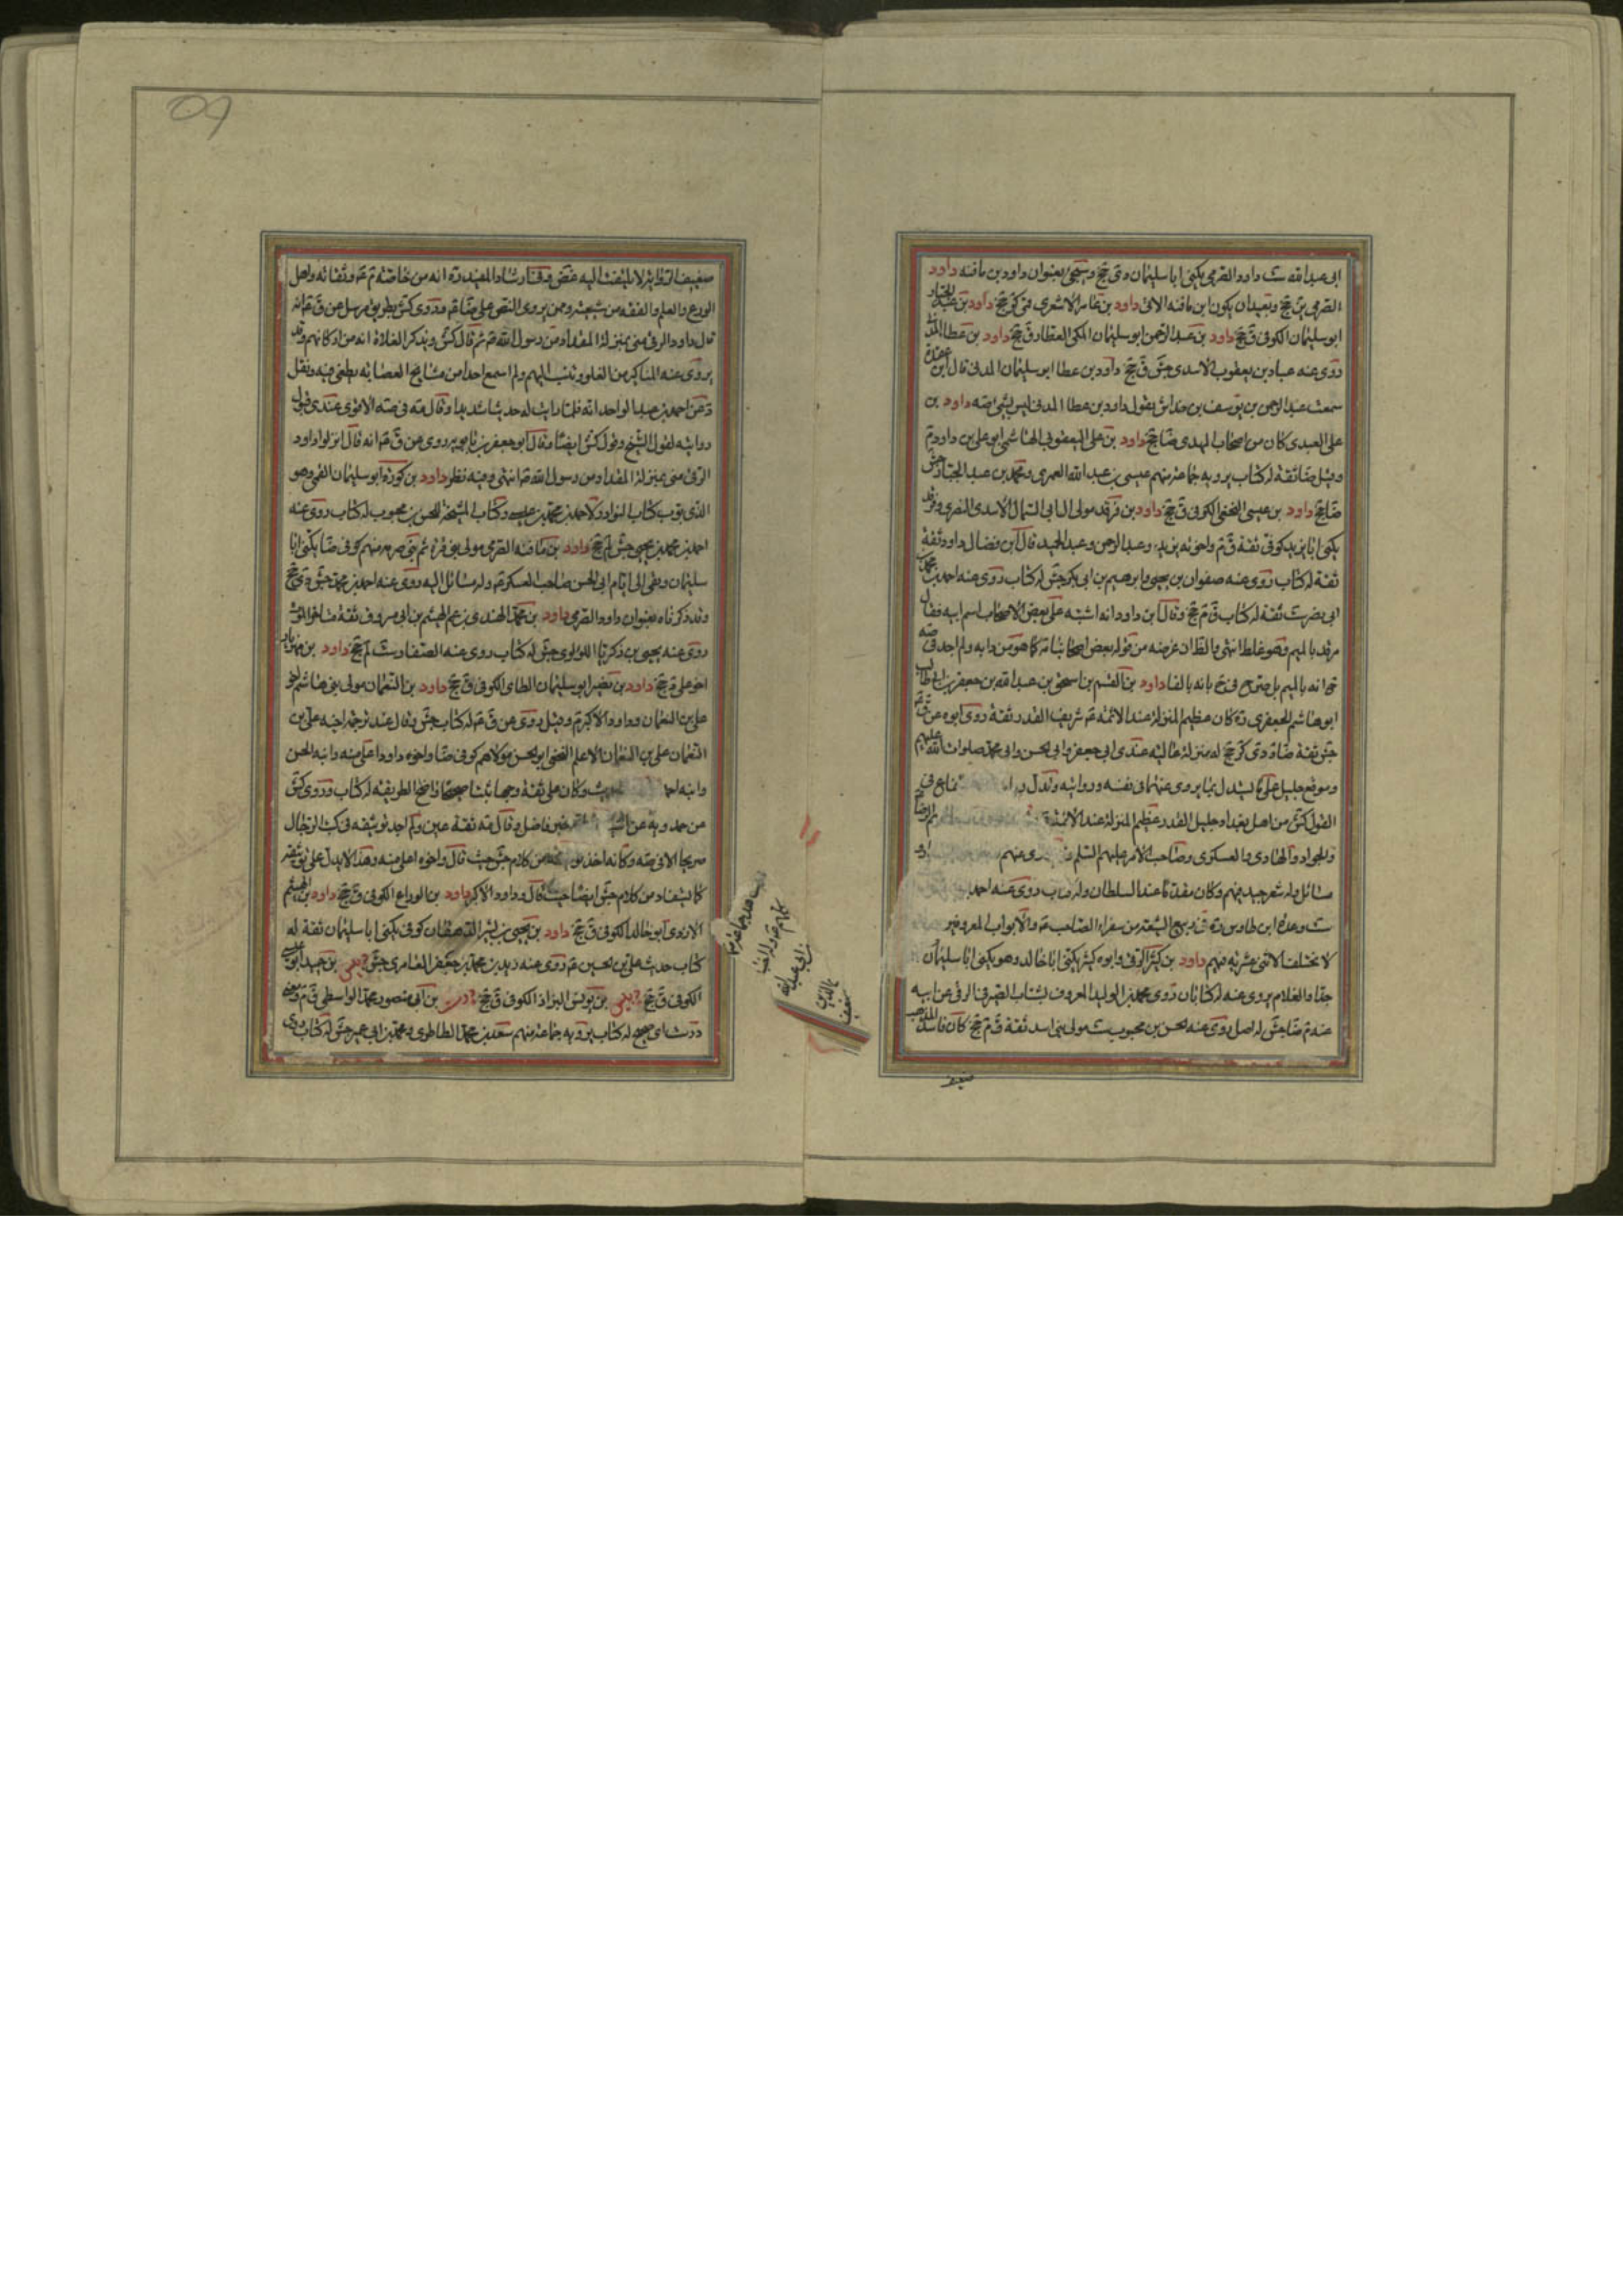 ابی عبدالله ست داود الصرمی یکنی ابا سلیمان دی جخ و سیجئ بعنوان داود بن مافنه داود
الصرمی ین جخ و بعید ان یکون ابن مافنه الاتی داود بن عامر الاشعری قمی کر جخ داود بن عبد الجبار
ابو سلیمان الکوفی ق جخ داود بن عبد الرحمن ابو سلیمان المکی العطار ق جخ داود بن عطا المدنی
روی عنه عباد بن یعقوب الاسدی جش ق جخ داود بن عطا ابو سلیمان المدنی قال ابن عقدة
سمعت عبد الرحمن بن یوسف بن خداش یقول داود بن عطا المدنی لیس بشئ صه داود بن
علی العبدی کان من اصحاب المهدی ضا جخ داود بن علی الیعقوبی الهاشمی ابو علی بن داود م
وقیل ضا ثقة له کتاب یرویه جماعة منهم عیسی بن عبد الله العمری و محمد بن عبد الجبار جش
ضا جخ داود بن عیسی النخعی الکوفی ق جخ داود بن فرقد مولی ال ابی السمال الاسدی النصری و فرقد
یکنی ابا یزید کوفی ثقة ق م و اخوته یزید و عبد الرحمن و عبد الحمید قال ابن فضال داود ثقة
ثقة له کتاب روی عنه صفوان بن یحیی و ابرهیم بن ابی بکر جش له کتاب روی عنه احمد بن محمد بن
ابی نصر ست ثقة له کتاب ق م جخ و قال ابن داود انه اشتبه علی بعض الاصحاب اسم ابیه فقال
مرقد بالمیم و هو غلط انتهی و الظ ان غرضه من قوله بعض اصحابنا مه کما هو من دابه و لم اجد فی صه
انه بالمیم بل صرح فی ضح بانه بالفا داود بن القسم بن اسحق بن عبد الله بن جعفر بن ابی طالب
ابو هاشم الجعفری ره کان عظیم المنزلة عند الائمة ع شریف القدر ثقة روی ابوه عن ق ع
جش ثقة ضا د دی کر جخ له منزلة عالیة عند ابی جعفر و ابی الحسن و ابی محمد صلوات الله علیهم
و موقع جلیل علی ما یستدل بما یروی عنهم فی نفسه و روایته و تدل
القول کش من اهل بغداد جلیل القدر عظیم المنزلة عند الائمة
و الجواد و الهادی و العسکری و صاحب الامر علیهم السلم
مسائل و له شعر جید فیهم و کان مقدما عند السلطان و له کتاب روی عنه احمد
ست و عده ابن طاوس ره فی ربیع الشیعة من سفراء الصاحب ع و الابواب المعروفین
لا یختلف الاثنی عشریة فیهم داود بن کثیر الرقی و ابوه کثیر یکنی ابا خالد و هو یکنی ابا سلیمان
جدا و الغلاة یروی عنه له کتابان روی محمد بن الولید المعروف بشباب الصیرفی الرقی عن ابیه
عنه م ضا جش له اصل روی عنه الحسن بن محبوب ست مولی بنی اسد ثقة ق م جخ کان فاسد المذهب
ضعیف
ضعیف الروایة لا یلتفت الیه غض و فی ارشاد المفید ره انه من خاصة م ع و ثقاته و اهل
الورع و العلم و الفقه من شیعته و ممن یروی النص علی ضا ع و روی کش بطریق مرسل عن ق ع انه
قال داود الرقی منی بمنزلة المقداد من رسول الله ص ثم قال کش و یذکر الغلاة انه من ارکانهم و قد
یروی عنه المناکیر من الغلو و تنسب الیهم و لم اسمع احدا من مشایخ العصابة یطعن فیه و نقل
عن احمد بن عبد الواحد انه قلما رایت له حدیثا سدیدا و قال مه فی صه الاقوی عندی قبول
روایته لقول الشیخ و قول کش ایضا و قال ابو جعفر بن بابویه روی عن ق ع انه قال انزلوا داود
الرقی منی بمنزلة المقداد من رسول الله ص انتهی و فیه نظر داود بن کورة ابو سلیمان القمی و هو
الذی بوب کتاب النوادر لاحمد بن محمد بن عیسی و کتاب المشیخة للحسن بن محبوب له کتاب روی عنه
احمد بن محمد بن یحیی جش لم جخ داود بن مافنه الصرمی مولی بنی قرة ثم بنی صرمه منهم کوفی ضا یکنی ابا
سلیمان و بقی الی ایام ابی الحسن صاحب العسکر ع و له مسائل الیه روی عنه احمد بن محمد جش دی جخ
و قد ذکرناه بعنوان داود الصرمی داود بن محمد النهدی بن عم الهیثم بن ابی مسروق ثقة متاخر الموت
روی عنه یحیی بن زکریا اللولوی جش له کتاب روی عنه الصفار ست لم جخ داود بن مهزیار
اخو علی د جخ داود بن نصیر ابو سلیمان الطای الکوفی ق جخ داود بن النعمان مولی بنی هاشم اخو
علی بن النعمان و داود الاکبر م و قیل روی عن ق ع له کتاب جش و قال عند ترجمة اخیه علی بن
النعمان علی بن النعمان الاعلم النخعی ابو الحسن مولاهم کوفی ضا و اخوه داود اعلی منه و ابنه الحسن
و ابنه احمد وکان علی ثقة وجها ثبتا صحیحا واضح الطریقة له کتاب و روی کش
عن حمدویه عن خیر فاضل و قال مه ثقة عین و لم اجد توثیقه فی کتب الرجال
صریحا الا فی صه و کانه اخذ من کلام جش حیث قال و اخوه اعلی منه و هذا لا یدل علی توثیقه
کما یستفاد من کلام جش ایضا حیث قال و داود الاکبر داود بن الوراع الکوفی ق جخ داود بن الهیثم
الازدی ابو خالد الکوفی ق جخ داود بن یحیی بن بشیر الدهقان کوفی یکنی ابا سلیمان ثقة له
کتاب حدیث علی بن الحسین ع روی عنه زید بن محمد بن جعفر العامری جش بن حبیب ابو عیسی
الکوفی ق جخ بن یونس البزاز الکوفی ق جخ درست بن ابی منصور محمد الواسطی ق م و معنی
درست ای صحیح له کتاب یرویه جماعة منهم سعد بن محمد الطاطری و محمد بن ابی عمیر جش له کتاب روی